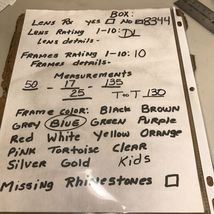 BOX:
Lens Rx yes □ No □ 8344
Lens Rating 1-10: DL
Lens details-
Frames Rating 1-10: 10
Frames details-
Measurements
50 - 17 - 135
25 T to T 130
Frame color: Black Brown
Grey Blue Green Purple
Red White Yellow Orange
Pink Tortoise Clear
Silver Gold Kids
Missing Rhinestones □